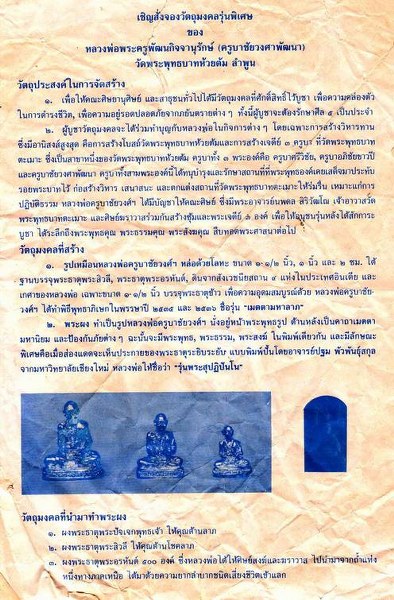 เชิญสั่งจองวัตถุมงคลรุ่นพิเศษ
ของ
หลวงพ่อพระครูพัฒนกิจจานุรักษ์ (ครูบาชัยวงศาพัฒนา)
วัดพระพุทธบาทห้วยต้ม ลำพูน
วัตถุประสงค์ในการจัดสร้าง
๑. เพื่อให้คณะศิษยานุศิษย์ และสาธุชนทั่วไปได้มีวัตถุมงคลที่ศักดิ์สิทธิ์ไว้บูชา เพื่อความคล่องตัว
ในการดำรงชีวิต, เพื่อความอยู่รอดปลอดภัยจากภยันตรายต่าง ๆ ทั้งนี้ผู้บูชาจะต้องรักษาศีล ๕ เป็นประจำ
๒. ผู้บูชาวัตถุมงคลจะได้ร่วมทำบุญกับหลวงพ่อในกิจการต่าง ๆ โดยเฉพาะการสร้างวิหารทาน
ซึ่งมีอานิสงส์สูงสุด คือการสร้างโบสถ์วัดพระพุทธบาทห้วยต้ม และพระเจดีย์ ๓ ครูบา ที่วัดพระพุทธบาท
ตะเมาะ ซึ่งเป็นสาขาหนึ่งของวัดพระพุทธบาทห้วยต้ม ครูบาทั้ง ๓ พระองค์คือ ครูบาศรีวิชัย, ครูบาอภิชัยขาวปี
และครูบาชัยวงศาพัฒนา ครูบาทั้งสามพระองค์นี้ได้ทนุบำรุงและรักษาสถานที่ที่พระพุทธองค์เคยเสด็จมาประทับ
รอยพระบาทไว้ ก่อสร้างวิหาร เสนาสนะ และตกแต่งสถานที่วัดพระพุทธบาทตะเมาะให้ร่มรื่น เหมาะแก่การ
ปฏิบัติธรรม หลวงพ่อครูบาวงศ์ฯ ได้มีบัญชาให้คณะศิษย์ ซึ่งมีพระอาจารย์นพดล สิริวฑฺฒโน เจ้าอาวาสวัด
พระพุทธบาทตะเมาะ และศิษย์ฆราวาสร่วมกันสร้างซุ้มและพระเจดีย์ ๓ องค์ เพื่อให้อนุชนรุ่นหลังได้สักการะ
บูชา ได้ระลึกถึงพระพุทธคุณ พระธรรมคุณ พระสังฆคุณ สืบทอดพระศาสนาต่อไป
วัตถุมงคลที่สร้าง
๑. รูปเหมือนหลวงพ่อครูบาชัยวงศ์ฯ หล่อด้วยโลหะ ขนาด ๑-๑/๒ นิ้ว, ๑ นิ้ว และ ๒ ซม. ใต้
ฐานบรรจุพระธาตุพระสิวลี, พระธาตุพระอรหันต์, ดินจากสังเวชนียสถาน ๔ แห่งในประเทศอินเดีย และ
เกศาของหลวงพ่อ เฉพาะขนาด ๑-๑/๒ นิ้ว บรรจุพระธาตุข้าว เพื่อความอุดมสมบูรณ์ด้วย หลวงพ่อครูบาชัย-
วงศ์ฯ ได้ทำพิธีพุทธาภิเษกในพรรษาปี ๒๕๓๕ และ ๒๕๓๖ ชื่อรุ่น "เมตตามหาลาภ"
๒. พระผง ทำเป็นรูปหลวงพ่อครูบาชัยวงศ์ฯ นั่งอยู่หน้าพระพุทธรูป ด้านหลังเป็นคาถาเมตตา
มหานิยม และป้องกันภัยต่าง ๆ ฉะนั้นจะมีพระพุทธ, พระธรรม, พระสงฆ์ ในพิมพ์เดียวกัน และมีลักษณะ
พิเศษคือเมื่อส่องแดดจะเห็นประกายของพระธาตุระยิบระยับ แบบพิมพ์ปั้นโดยอาจารย์ปฐม พัวพันธุ์สกุล
จากมหาวิทยาลัยเชียงใหม่ หลวงพ่อให้ชื่อว่า "รุ่นพระสุปฏิปันโน"
วัตถุมงคลที่นำมาทำพระผง
๑. ผงพระธาตุพระปัจเจกพุทธเจ้า ให้คุณด้านลาภ
๒. ผงพระธาตุพระสิวลี ให้คุณด้านโชคลาภ
๓. ผงพระธาตุพระอรหันต์ ๕๐๐ องค์ ซึ่งหลวงพ่อได้ให้ศิษย์สงฆ์และฆราวาส ไปนำมาจากถ้ำแห่ง
หนึ่งทางภาคเหนือ ได้มาด้วยความยากลำบากชนิดเสี่ยงชีวิตเข้าแลก